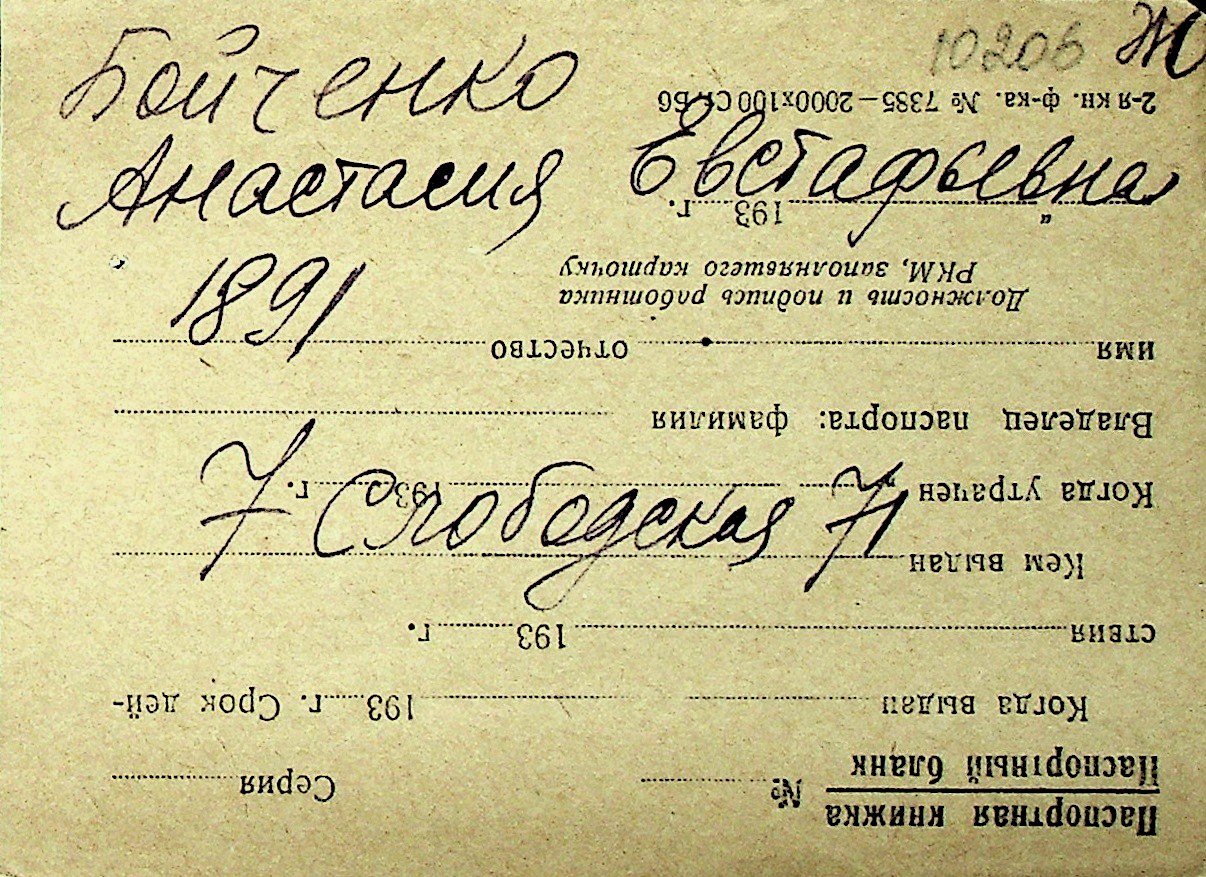 10206 Ж
Бойченко
Анастасия Евстафьевна
1891
7 Слободская 71
Паспортная книжка
Паспортный бланк № Серия
Когда выдан 193 г. Срок дей-
ствия 193 г.
Кем выдан
Когда утрачен 193 г.
Владелец паспорта: фамилия
имя отчество
Должность и подпись работника
РКМ, заполнявшего карточку
" 193 г.
2-я кн. ф-ка. № 7385—2000х100